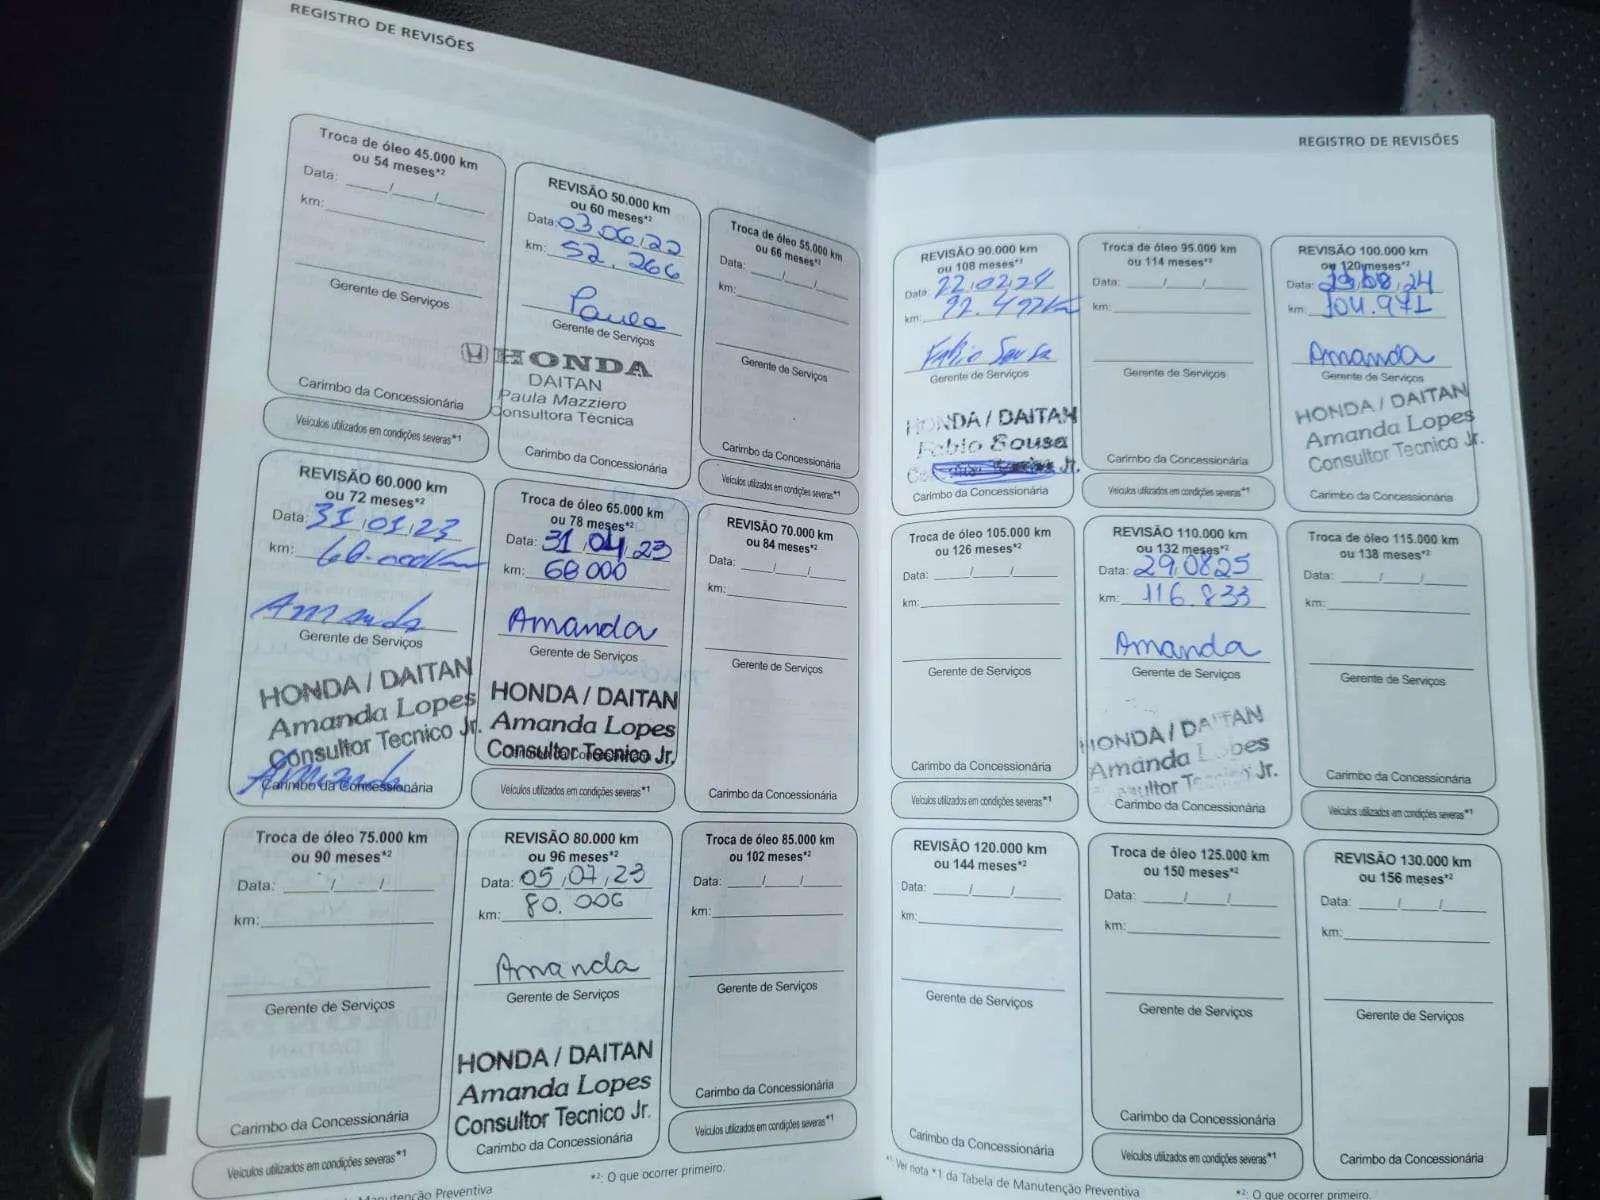 REGISTRO DE REVISÕES
Troca de óleo 45.000 km
ou 54 meses*2
Data: ____/____/____
km:
Gerente de Serviços
Carimbo da Concessionária
Veículos utilizados em condições severas*1
REVISÃO 50.000 km
ou 60 meses*2
Data: 03/06/22
km: 52.266
Paula
Gerente de Serviços
HONDA
DAITAN
Paula Mazziero
Consultora Técnica
Carimbo da Concessionária
Troca de óleo 55.000 km
ou 66 meses*2
Data: ____/____/____
km:
Gerente de Serviços
Carimbo da Concessionária
Veículos utilizados em condições severas*1
REVISÃO 60.000 km
ou 72 meses*2
Data: 31/01/23
km: 60.000km
Amanda
Gerente de Serviços
HONDA / DAITAN
Amanda Lopes
Consultor Tecnico Jr.
Amanda
Carimbo da Concessionária
Troca de óleo 65.000 km
ou 78 meses*2
Data: 31/04/23
km: 68000
Amanda
Gerente de Serviços
HONDA / DAITAN
Amanda Lopes
Consultor Tecnico Jr.
Veículos utilizados em condições severas*1
REVISÃO 70.000 km
ou 84 meses*2
Data: ____/____/____
km:
Gerente de Serviços
Carimbo da Concessionária
Troca de óleo 75.000 km
ou 90 meses*2
Data: ____/____/____
km:
Gerente de Serviços
Carimbo da Concessionária
Veículos utilizados em condições severas*1
REVISÃO 80.000 km
ou 96 meses*2
Data: 05/07/23
km: 80.006
Amanda
Gerente de Serviços
HONDA / DAITAN
Amanda Lopes
Consultor Tecnico Jr.
Carimbo da Concessionária
Troca de óleo 85.000 km
ou 102 meses*2
Data: ____/____/____
km:
Gerente de Serviços
Carimbo da Concessionária
Veículos utilizados em condições severas*1
Manutenção Preventiva
*2: O que ocorrer primeiro.
REGISTRO DE REVISÕES
REVISÃO 90.000 km
ou 108 meses*2
Data: 22/02/24
km: 92.477km
Fabio Sousa
Gerente de Serviços
HONDA / DAITAN
Fabio Sousa
Jr.
Carimbo da Concessionária
Troca de óleo 95.000 km
ou 114 meses*2
Data: ____/____/____
km:
Gerente de Serviços
Carimbo da Concessionária
Veículos utilizados em condições severas*1
REVISÃO 100.000 km
ou 120 meses*2
Data: /08/24
km: 104.971
Amanda
Gerente de Serviços
HONDA / DAITAN
Amanda Lopes
Consultor Tecnico Jr.
Carimbo da Concessionária
Troca de óleo 105.000 km
ou 126 meses*2
Data: ____/____/____
km:
Gerente de Serviços
Carimbo da Concessionária
Veículos utilizados em condições severas*1
REVISÃO 110.000 km
ou 132 meses*2
Data: 29/08/25
km: 116.833
Amanda
Gerente de Serviços
HONDA / DAITAN
Amanda Lopes
Consultor Tecnico Jr.
Carimbo da Concessionária
Troca de óleo 115.000 km
ou 138 meses*2
Data: ____/____/____
km:
Gerente de Serviços
Carimbo da Concessionária
Veículos utilizados em condições severas*1
REVISÃO 120.000 km
ou 144 meses*2
Data: ____/____/____
km:
Gerente de Serviços
Carimbo da Concessionária
Troca de óleo 125.000 km
ou 150 meses*2
Data: ____/____/____
km:
Gerente de Serviços
Carimbo da Concessionária
Veículos utilizados em condições severas*1
REVISÃO 130.000 km
ou 156 meses*2
Data: ____/____/____
km:
Gerente de Serviços
Carimbo da Concessionária
*1: Ver nota *1 da Tabela de Manutenção Preventiva
*2: O que ocorrer primeiro.